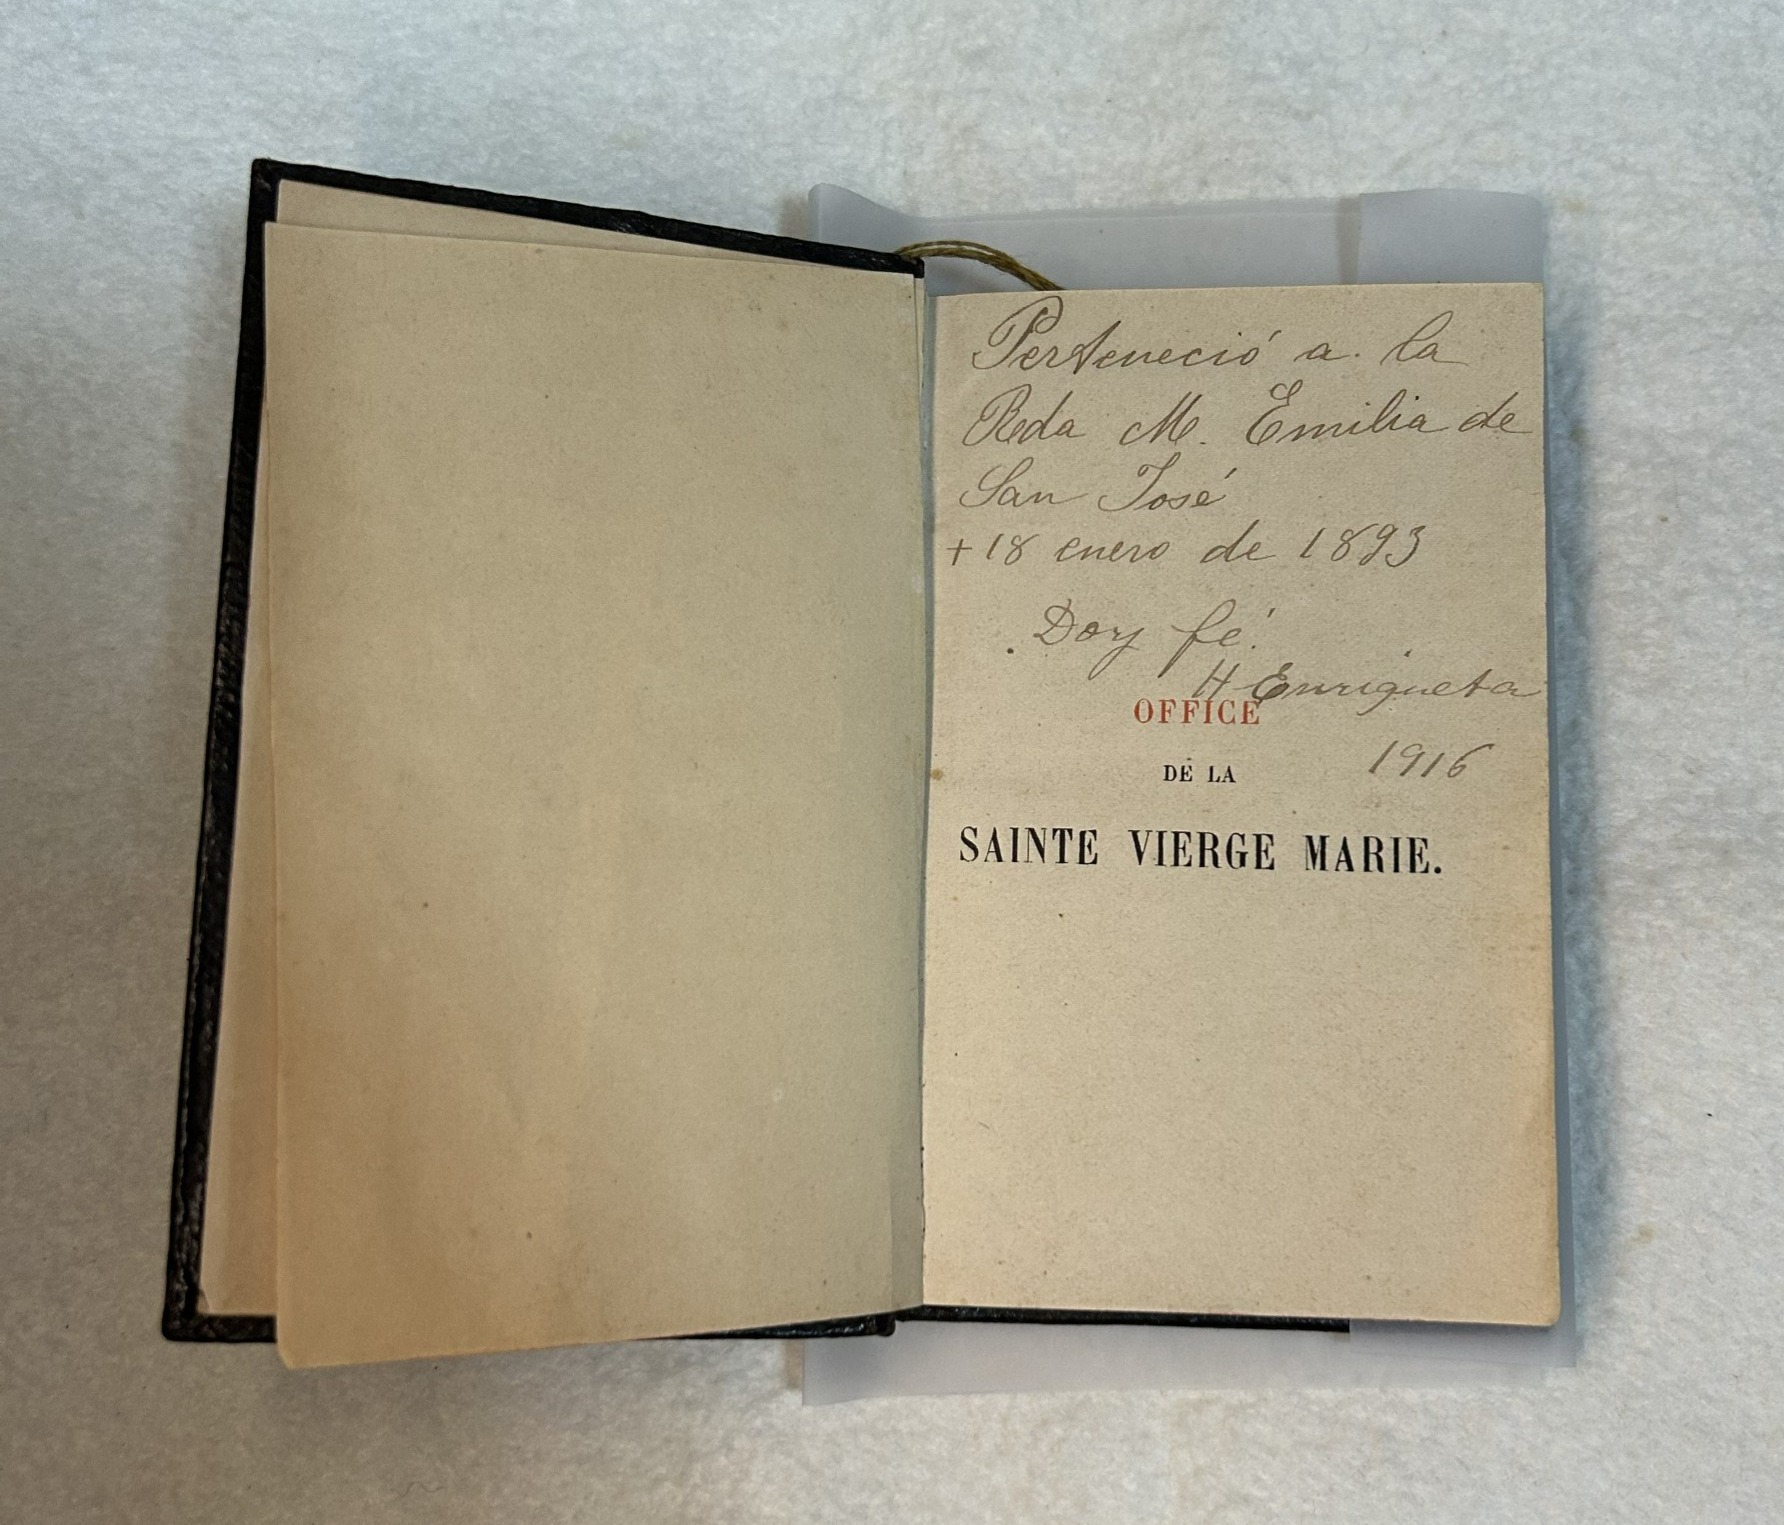 Perteneció a la
Rda M. Emilia de
San José
+ 18 enero de 1893
Doy fé.
H Enriqueta
OFFICE
1916
DE LA
SAINTE VIERGE MARIE.